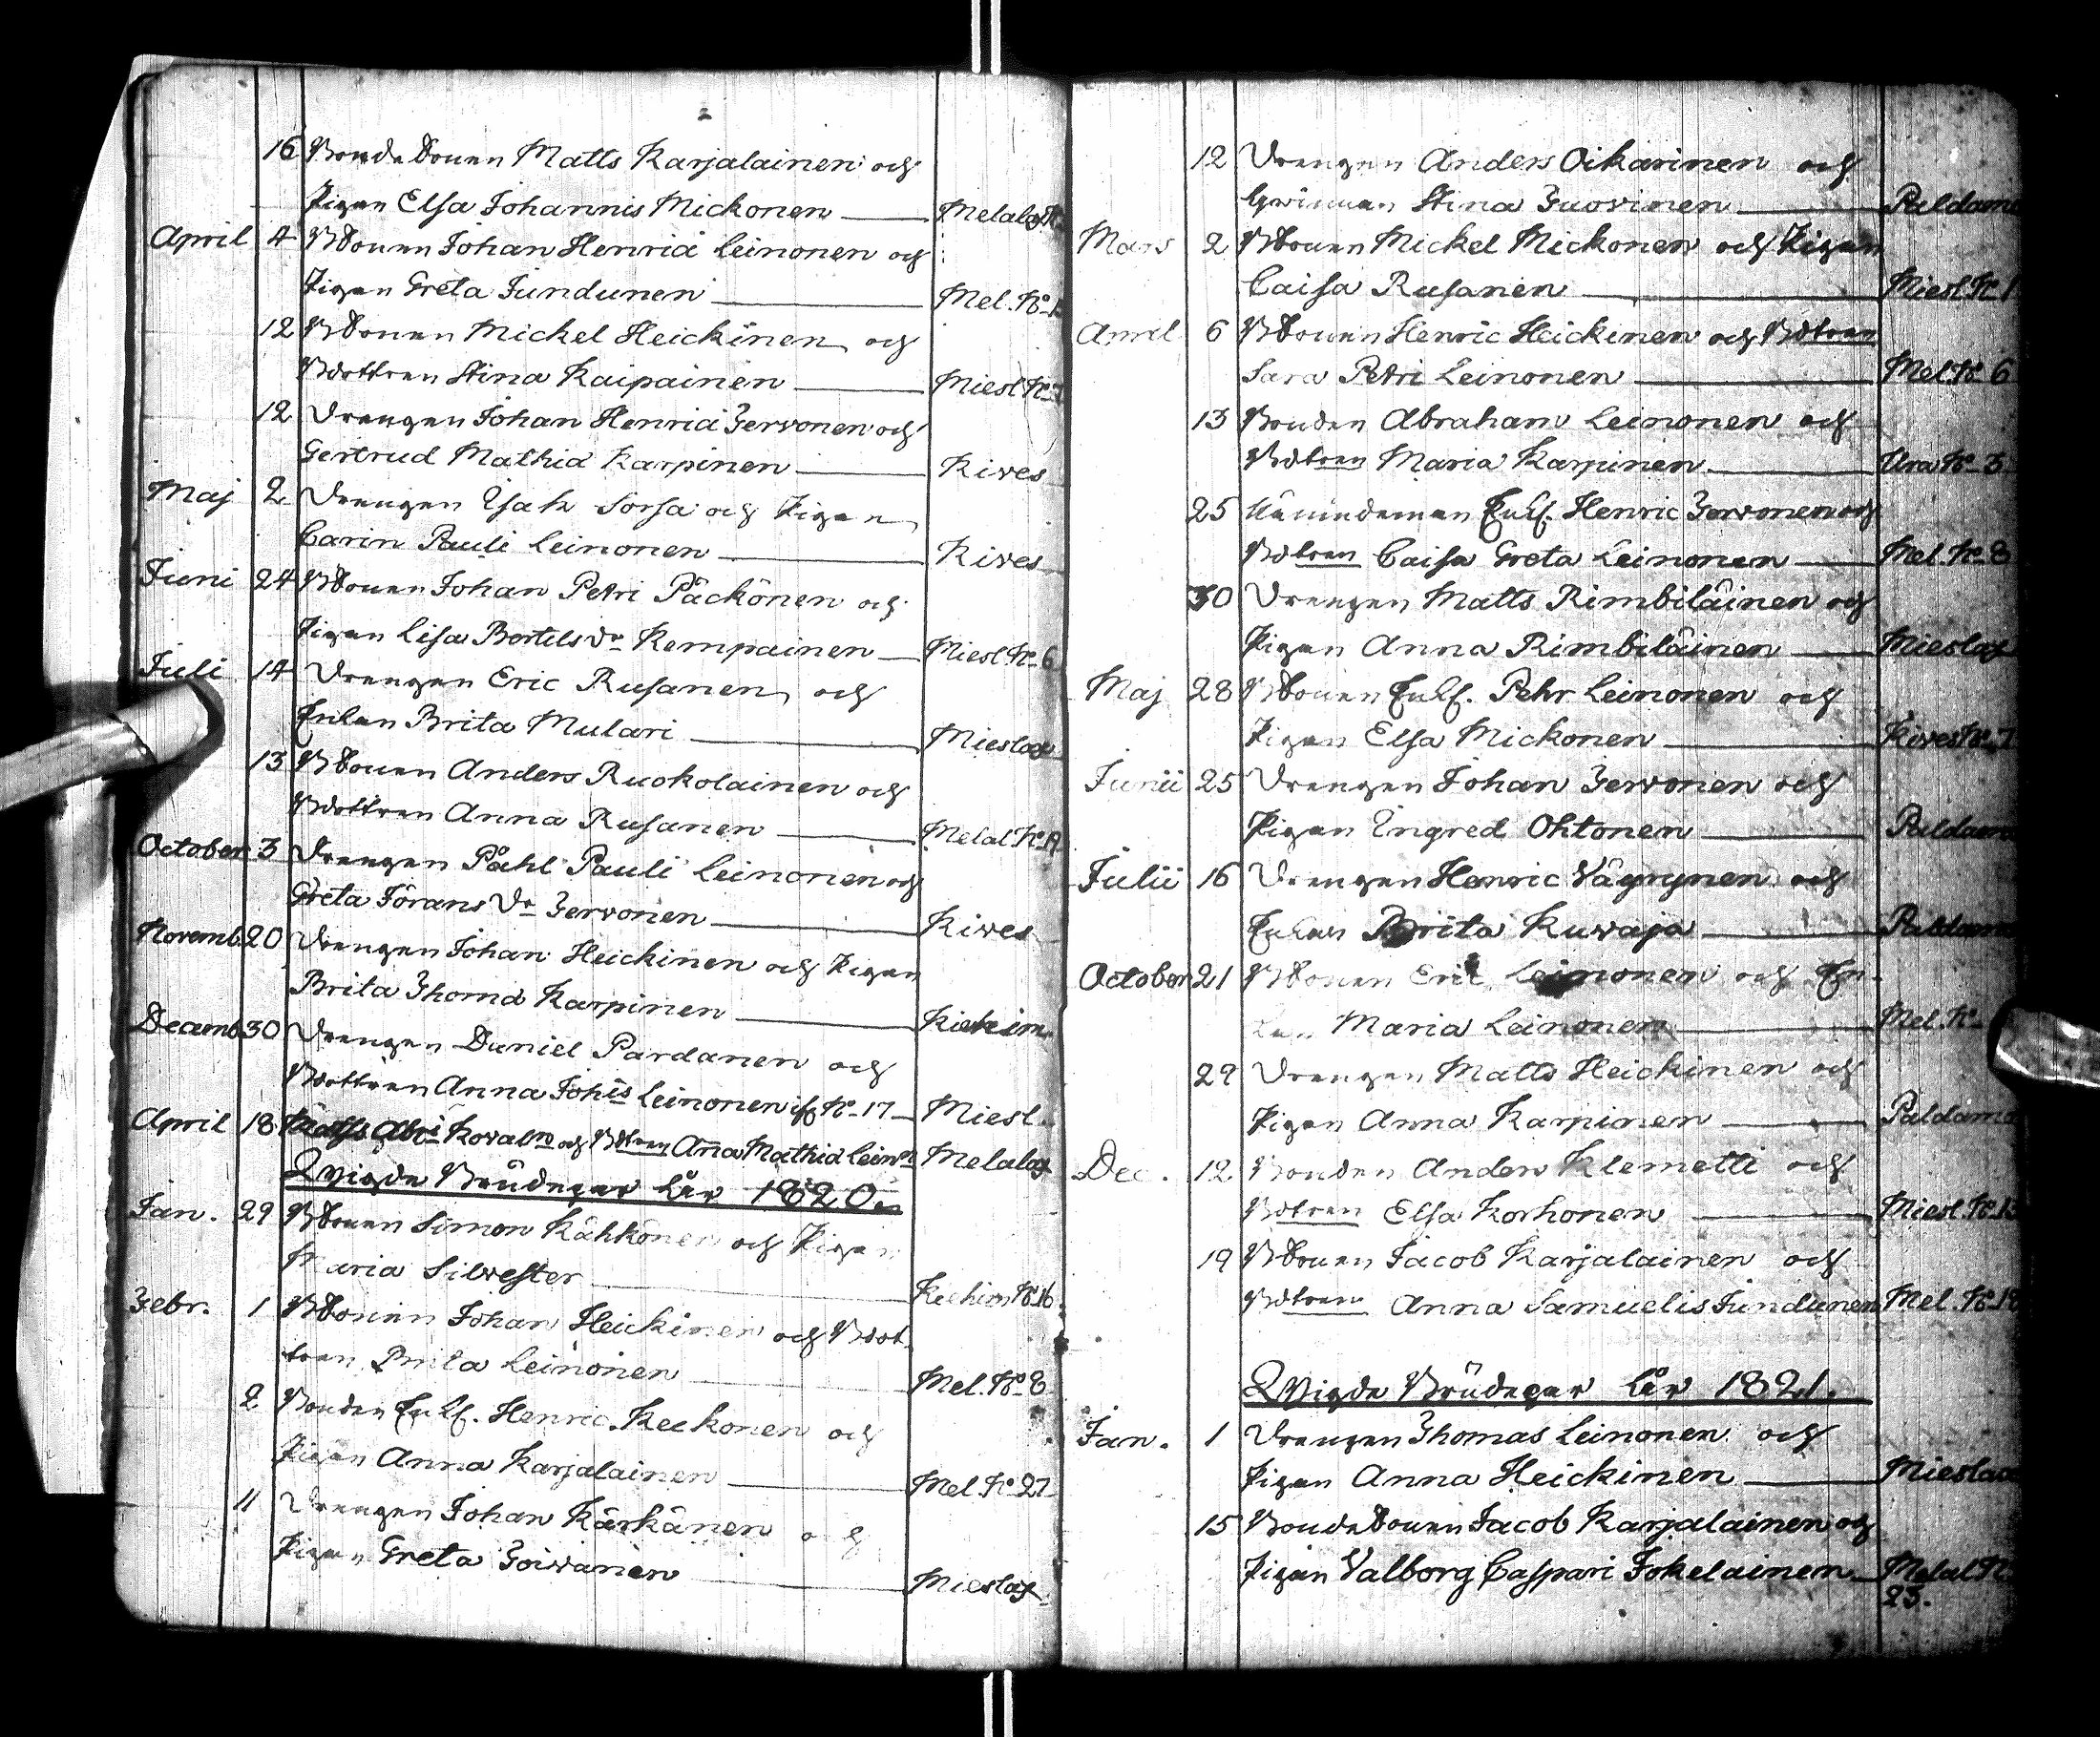 16 BondeSonen Matts Karjalainen och
Pigan Elsa Johannis Mickonen — Melalax
April 4 BSonen Johan Henrici Leinonen och
Pigan Greta Jundunen — Mel. No
12 BSonen Michel Heickinen och
Bdottren Stina Kaipainen — Miesl No
12 Drengen Johan Henrici Jervonen och
Gertrud Mathiæ Karpinen — Kives
Maj 2 Drengen Esah Sorsa och Pigan
Carin Pauli Leinonen — Kives
Juni 24 BSonen Johan Petri Päckönen och
Pigan Lisa Bertils Dr Kempainen — Miesl. No 6
Juli 14 Drengen Eric Rusanen och
Enkan Brita Mulari — Mieslax
13 BSonen Anders Ruokolainen och
Bdottren Anna Rusanen — Melal No
October 3 Drengen Påhl Pauli Leinonen och
Greta Jörans Dr Jervonen — Kives
Novemb. 20 Drengen Johan Heickinen och Pigan
Brita Thomæ Karpinen —
Decemb 30 Drengen Daniel Pardanen och
Bdottren Anna Johis Leinonen No 17 — Miesl.
April 18 Abri Kovaln och Bdtren Anna Mathiæ Lein — Melalax
Wigde Brüdepar År 1820.
Jan. 29 BSonen Simon Kähkönen och Pigan
Maria Silvester — No 16
Febr. 1 BSonen Johan Heickinen och Bdot
tren Brita Leinonen — Mel. No 8
2 Bonden Enkl. Henric Keckonen och
Pigan Anna Karjalainen — Mel No 27
11 Drengen Johan Kärkänen och
Pigan Greta Toivanen — Mieslax
12 Drengen Anders Oikarinen och
Qwinnan Stina Juovinen — Paldamo
Mars 2 BSonen Mickel Mickonen och Pigan
Caisa Rusanen — Miesl No 1
April 6 BSonen Henric Heickinen och Bdtren
Sara Petri Leinonen — Mel. No 6
13 Bonden Abraham Leinonen och
Bdtren Maria Karpinen — Ura No 3
25 Nämndeman Enkl. Henric Jervonen och
Bdtren Caisa Greta Leinonen — Mel. No 8
30 Drengen Matts Rimbiläinen och
Pigan Anna Rimbiläinen — Mieslax
Maj 28 BSonen Enkl. Pehr Leinonen och
Pigan Elsa Mickonen — Kives No 7
Junii 25 Drengen Johan Jervonen och
Pigan Engred Ohtonen — Paldamo
Julii 16 Drengen Henric Väyrynen och
Enkan Brita Kuvaja — Paldamo
October 21 BSonen Eric Leinonen och En-
kan Maria Leinonen — Mel. No
29 Drengen Matts Heickinen och
Pigan Anna Karpinen — Paldamo
Dec. 12 Bonden Anders Klemetti och
Bdtren Elsa Korhonen — Miesl. No 13
19 BSonen Jacob Karjalainen och
Bdtren Anna Samuelis Jundunen Mel. No
Wigde Brüdepar År 1821.
Jan. 1 Drengen Thomas Leinonen och
Pigan Anna Heickinen — Mieslax
15 BondeSonen Jacob Karjalainen och
Pigan Valborg Caspari Jokelainen — Melal N
23.